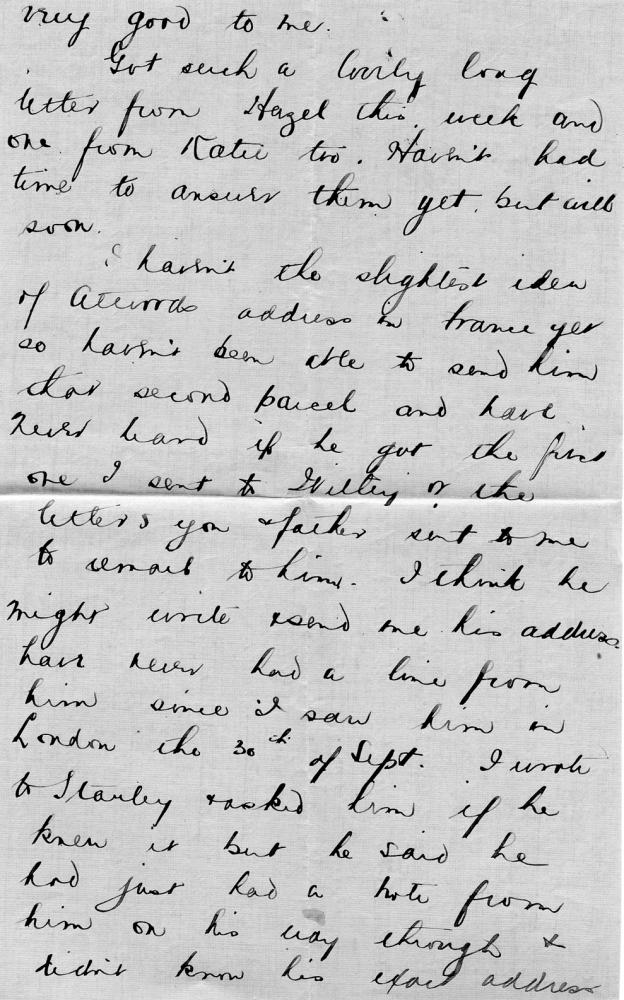 very good to me.
Got such a lovily long
letter from Hazel this week and
one from Katie too. Haven't had
time to answer them yet, but will
soon.
I haven't the slightest idea
of Atwoods address in France yet
so haven't been able to send him
that second parcel and have
never heard if he got the first
one I sent to Witley or the
letters you & father sent to me
to remail to him. I think he
might write & send me his address
have never had a line from
him since I saw him in
London the 30th of Sept. I wrote
to Stanley & asked him if he
knew it but he said he
had just had a note from
him on his way through &
didn't know his exact address